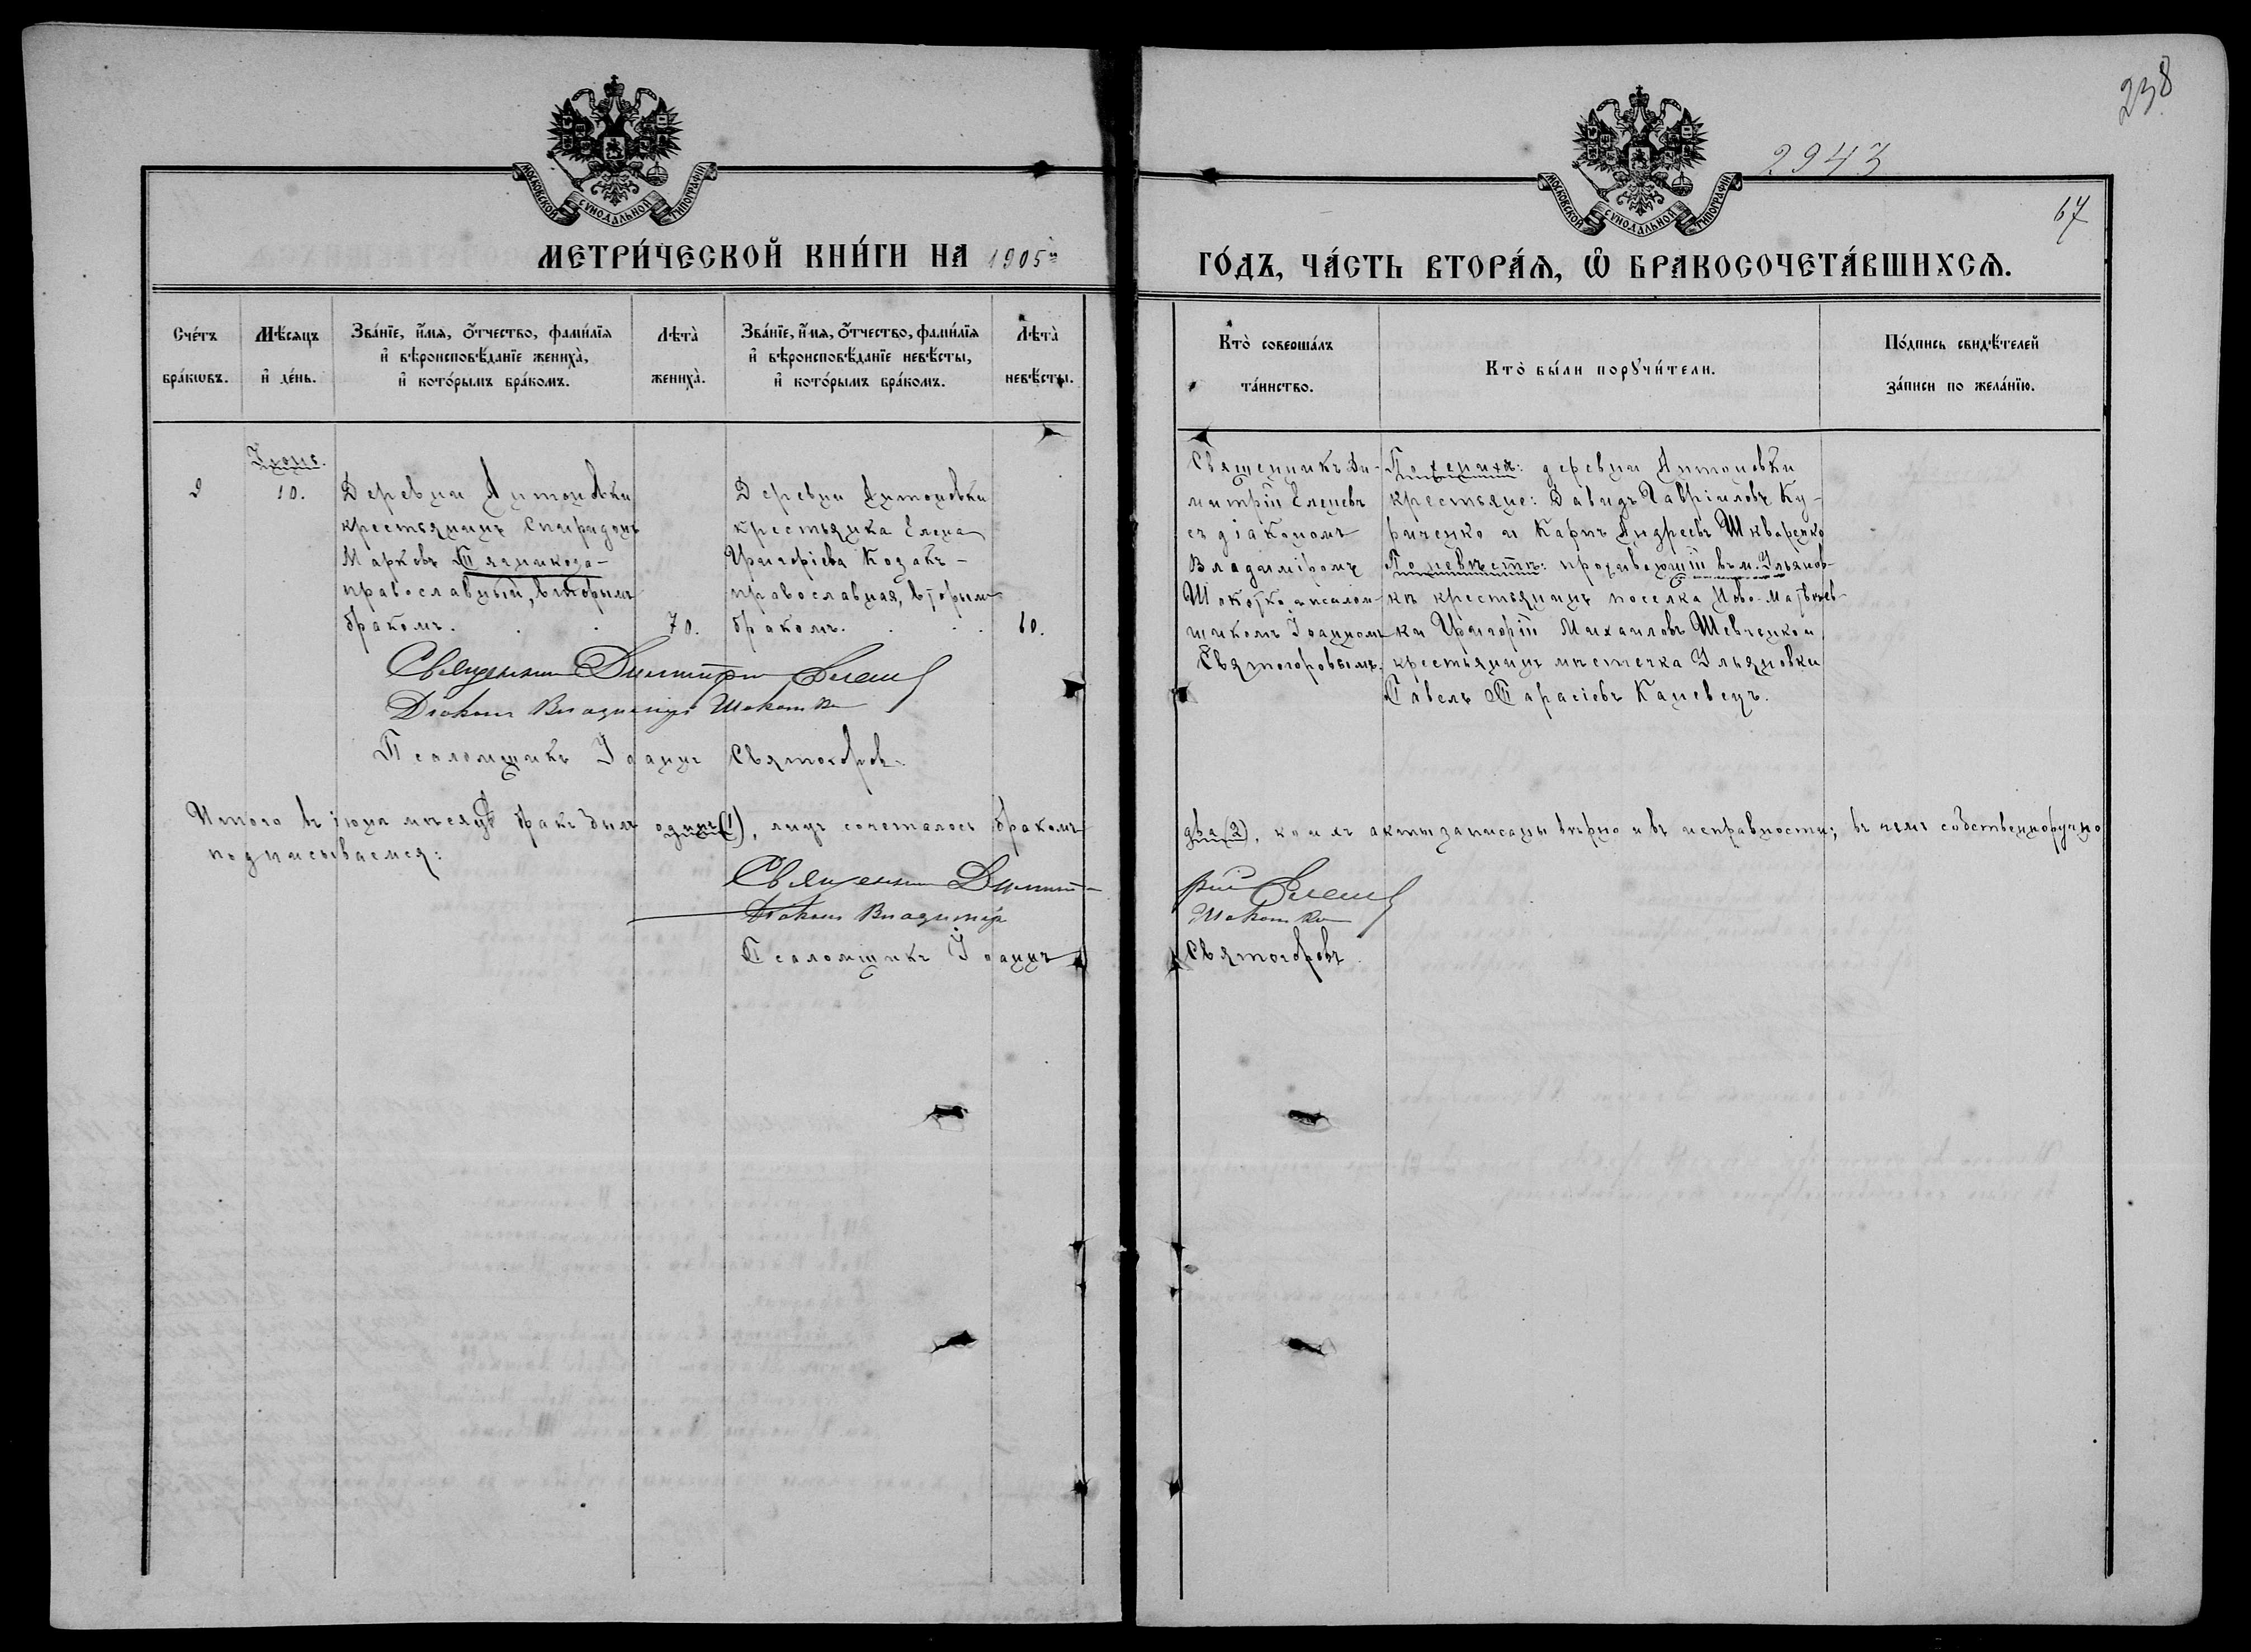 238
2943
67
МОСКОВСКОЙ СУНОДАЛЬНОЙ ТИПОГРАФІИ
МОСКОВСКОЙ СУНОДАЛЬНОЙ ТИПОГРАФІИ
МЕТРИ́ЧЕСКОЙ КНИ́ГИ НА 1905й
ГО́ДЪ, ЧА́СТЬ ВТОРА́Ѧ, Ѽ БРАКОСОЧЕТА́ВШИХСѦ.
Сче́тъ
бра́кѡвъ.
Мѣ́сѧцъ
и҆ де́нь.
Зва́нїе, и҆́мѧ, ѻ҆́тчество, фами́лїѧ
и҆ вѣроисповѣ́данїе женихà,
и҆ кото́рымъ бра́комъ.
Лѣтà
женихà.
Зва́нїе, и҆́мѧ, ѻ҆́тчество, фами́лїѧ
и҆ вѣроисповѣ́данїе невѣ́сты,
и҆ кото́рымъ бра́комъ.
Лѣтà
невѣ́сты.
Ктò соверша́лъ
та́инство.
Ктò бы́ли порꙋчи́тели.
По́дпись свидѣ́телей
за́писи по жела́нїю.
Іюнь.
10.
Деревни Антоновки
крестьянинъ Спиридонъ
Марковъ
православный, вторымъ
бракомъ.
70.
Деревни Антоновки
крестьянка Елена
Григоріева Козакъ –
православная, вторымъ
бракомъ.
60.
Священникъ Ди-
митрій Еленевъ
съ діакономъ
Владиміромъ
Шокотко и псалом-
щикомъ Іоанномъ
Святогоровымъ.
По женихѣ: деревни Антоновки
крестьяне: Давидъ Гавріиловъ Ку-
риченко и Карпъ Андреевъ Шкваренко
По невѣстѣ: проживающій въ м. Ульянов-
кѣ крестьянинъ поселка Ново-Матвѣев-
ки Григорій Михаиловъ Шевченко и
крестьянинъ мѣстечка Ульяновки
Павелъ Тарасіевъ Каневецъ.
Священникъ Димитрій Еленев
Діаконъ Владиміръ Шокотко
Псаломщикъ Іоаннъ Святогоровъ.
Итого въ іюнѣ мѣсяцѣ бракъ былъ одинъ (1), лицъ сочеталось бракомъ два (2), коихъ акты записаны вѣрно и въ исправности; въ чемъ собственноручно
подписываемся:
Священникъ Димитрій Еленев
Діаконъ Владиміръ Шокотко
Псаломщикъ Іоаннъ Святогоровъ